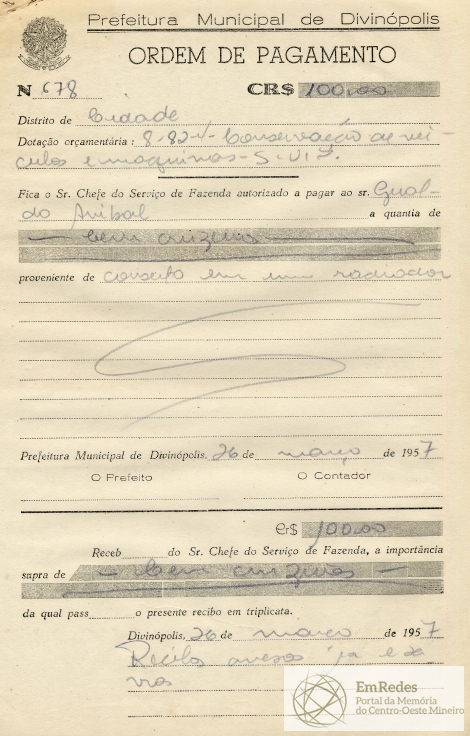 Prefeitura Municipal de Divinópolis
ORDEM DE PAGAMENTO
N 678 CR$ 100,00
Distrito de Cidade
Dotação orçamentária : 8-82-4- Conservação de vei
culos e maquinas - S.V.I.P.
Fica o Sr. Chefe do Serviço de Fazenda autorizado a pagar ao sr. Gual-
do Anibal a quantia de
— cem cruzeiros —
proveniente de conserto em um radiador
Prefeitura Municipal de Divinópolis, 26 de março de 1957
O Prefeito O Contador
Cr$ 100,00
Receb do Sr. Chefe do Serviço de Fazenda, a importância
supra de — cem cruzeiros —
da qual pass o presente recibo em triplicata.
Divinópolis, 26 de março de 1957
Recibo anexos
EmRedes
Portal da Memória
do Centro-Oeste Mineiro